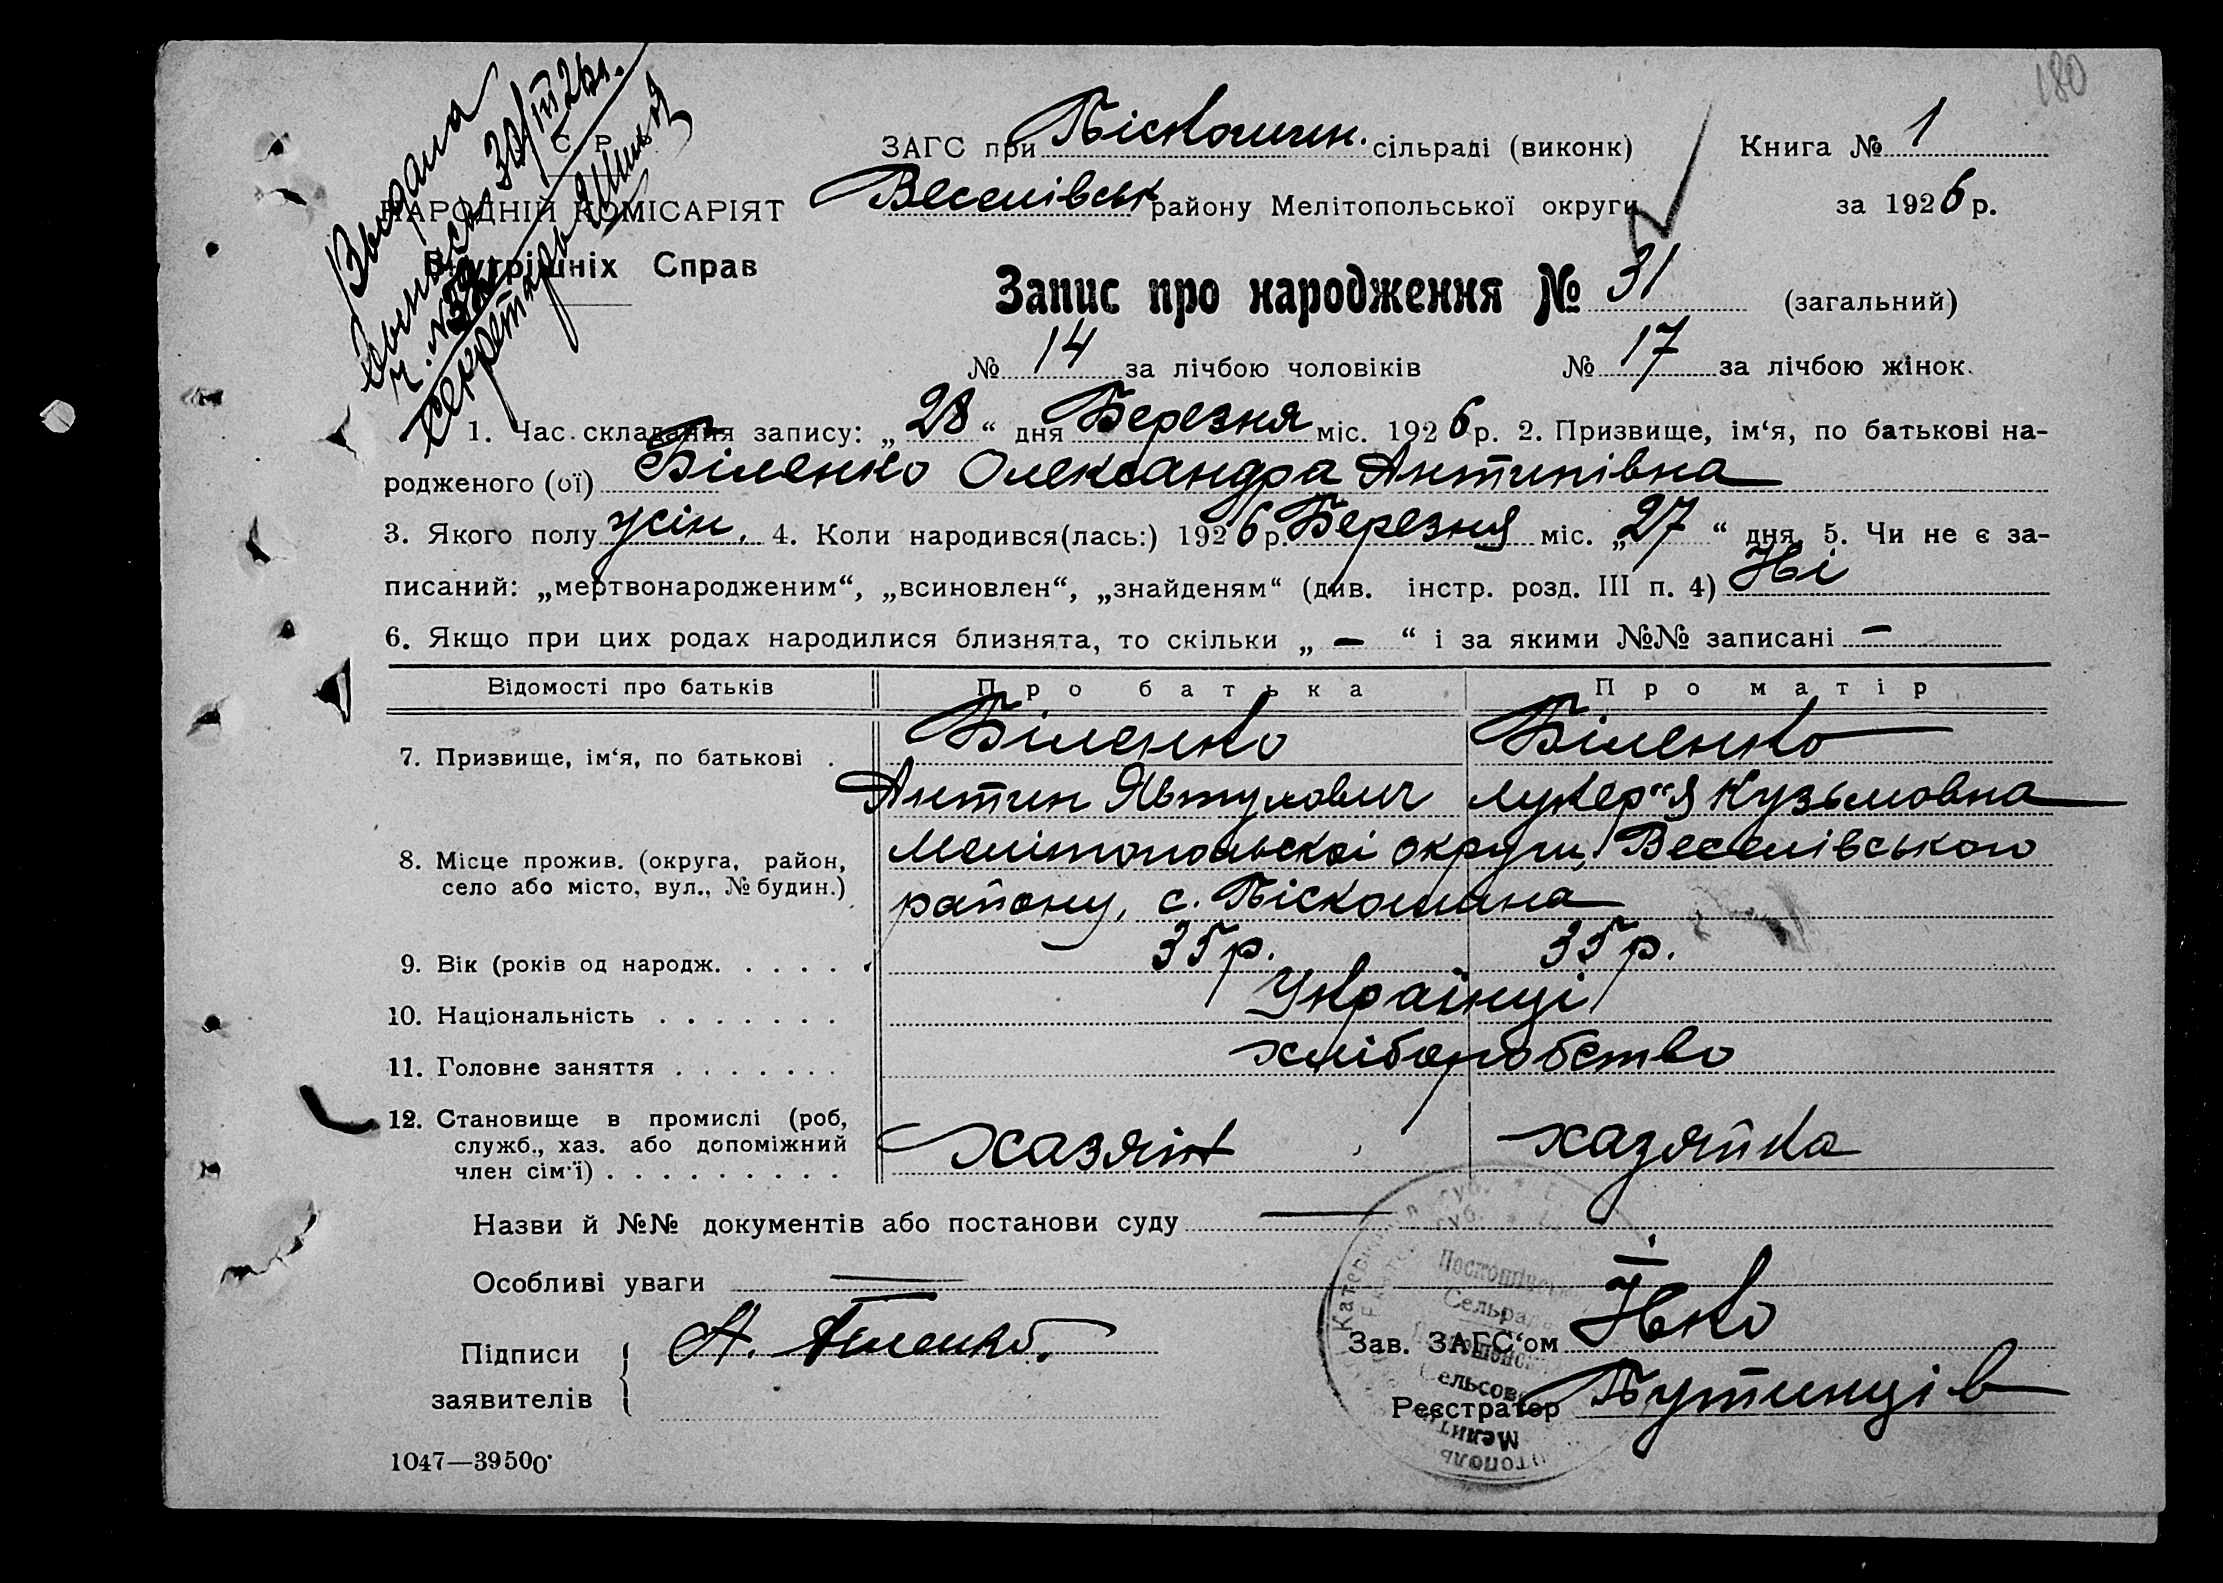 180
Выдана
выпись 30/III 26 г.
Секретарь
С. Р.
НАРОДНІЙ КОМІСАРІЯТ
Внутрішніх Справ
ЗАГС при Піскошин. сільраді (виконк) Книга № 1
Веселівськ району Мелітопольської округи за 1926 р.
Запис про народження № 31 (загальний)
№ 14 за лічбою чоловіків № 17 за лічбою жінок.
1. Час складання запису: „ 28 “ дня Березня міс. 1926 р. 2. Призвище, ім‘я, по батькові на-
родженого (ої) Біленко Олександра Антипівна
3. Якого полу жін. 4. Коли народився(лась:) 1926 р. Березня міс. „ 27 “ дня. 5. Чи не є за-
писаний: „мертвонародженим“, „всиновлен“, „знайденям“ (див. інстр. розд. III п. 4) Ні
6. Якщо при цих родах народилися близнята, то скільки „ — “ і за якими №№ записані —
Відомості про батьків Про батька Про матір
7. Призвище, ім‘я, по батькові . Біленко Біленко
Антип Явтухович Лукер"я Кузьмовна
8. Місце прожив. (округа, район, Мелітопольскоі округи, Веселівського
село або місто, вул., № будин.) району, с. Піскошина
9. Вік (років од народж. . . . . 35 р. 35 р.
10. Національність . . . . . . . Українці
11. Головне заняття . . . . . . . хліборобство
12. Становище в промислі (роб,
служб., хаз. або допоміжний хазяїн хазяйка
член сім‘ї) . . . . . . . . .
Назви й №№ документів або постанови суду —
Особливі уваги —
Підписи А. Біленко.
заявителів
Зав. ЗАГС‘ом
Реєстратор Путинців
Сельрада
1047—39500